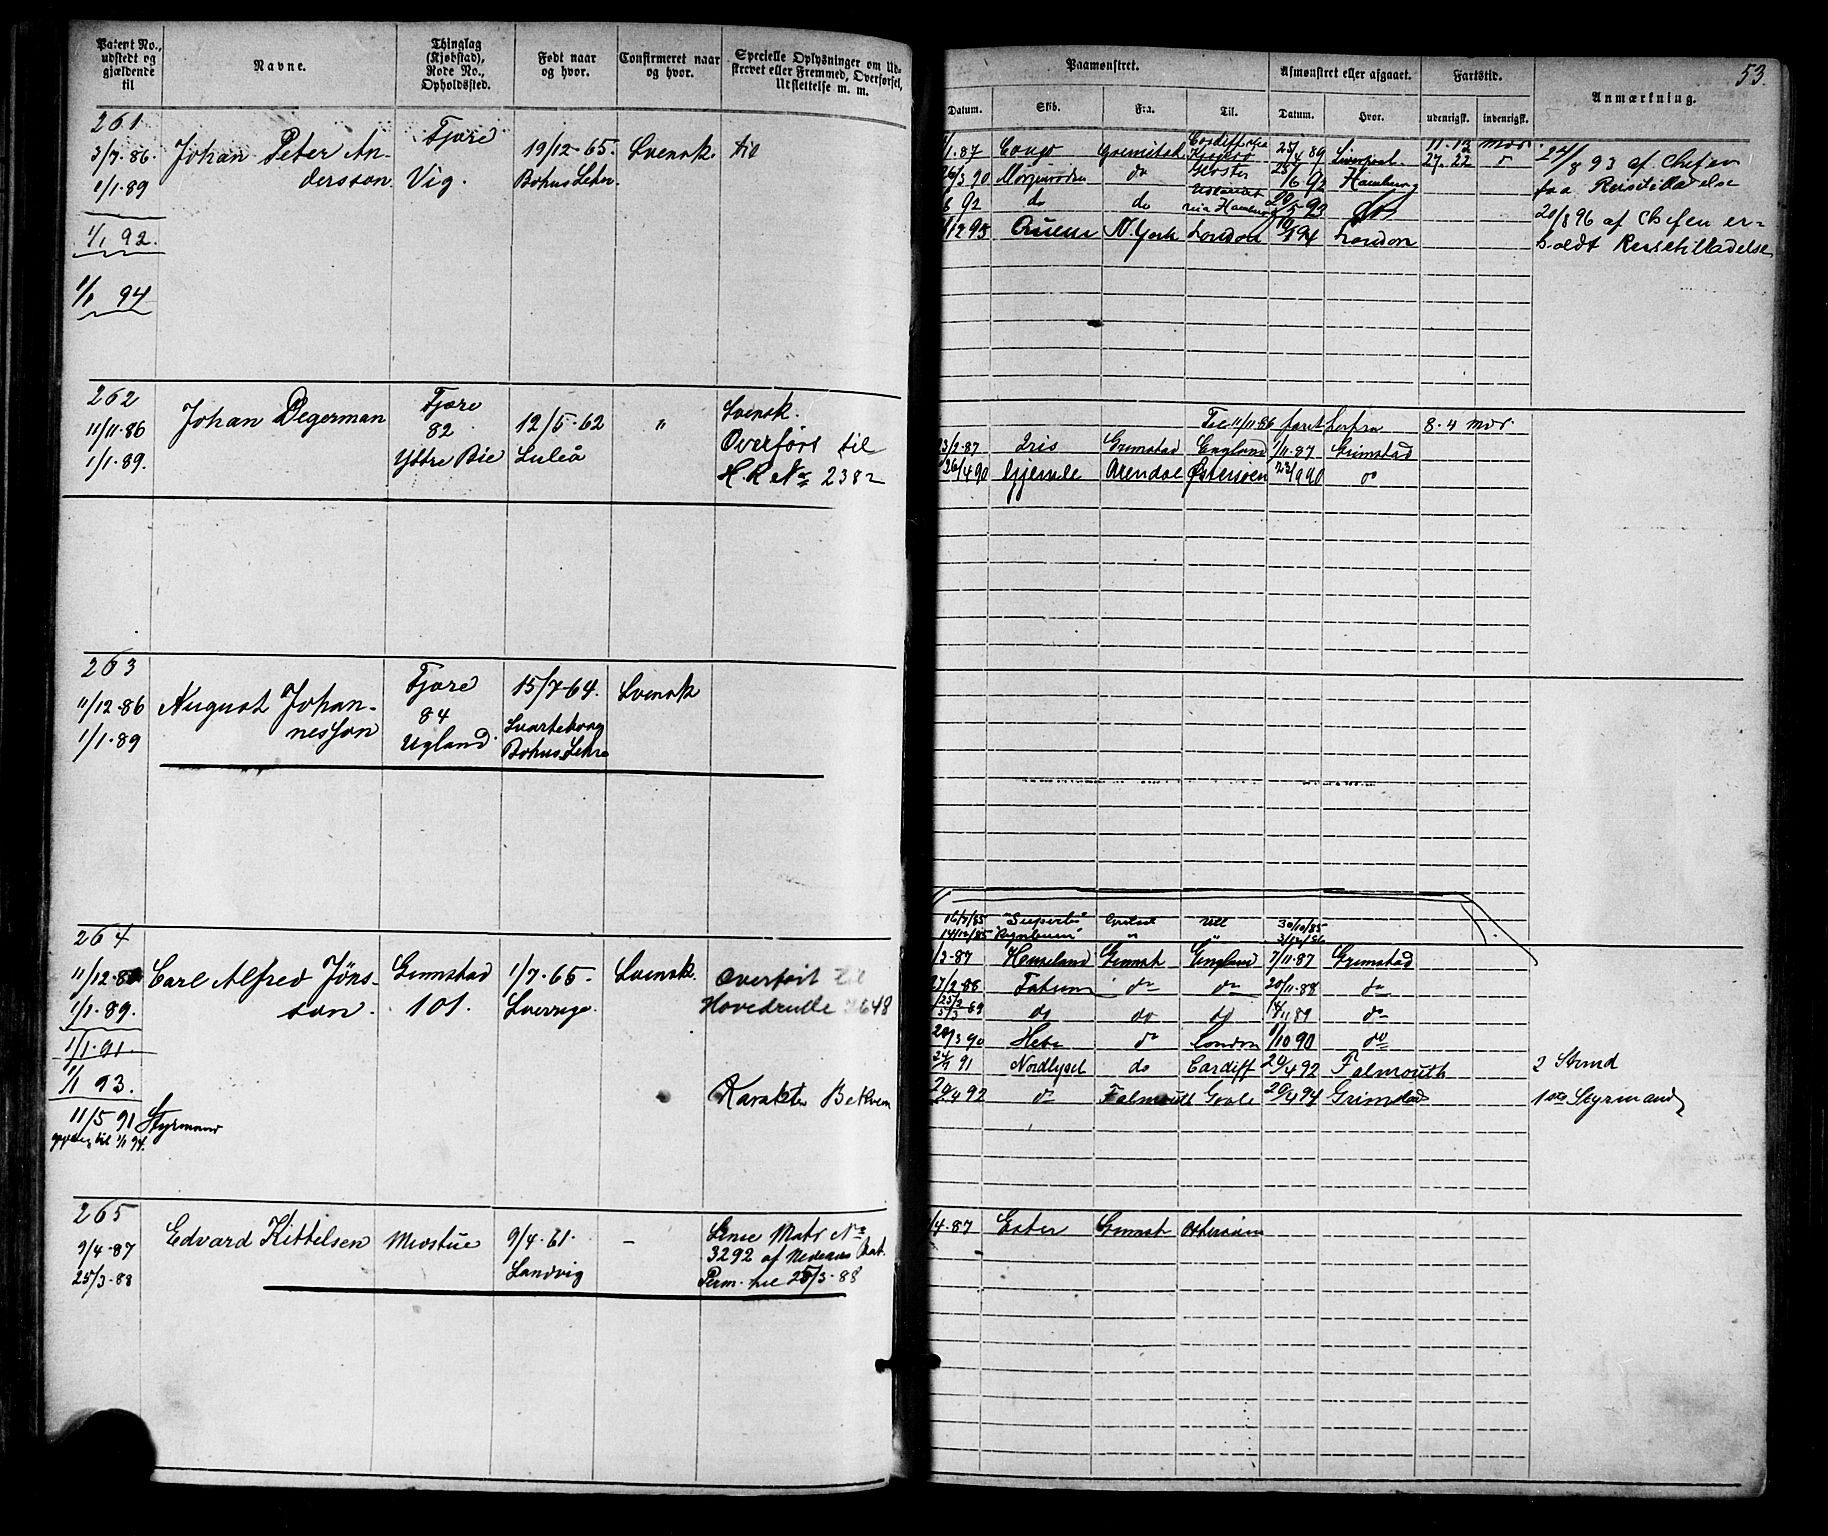 53.
Patent No., udstedt og gjældende til
Navne.
Thinglag (Kjøbstad), Rode No., Opholdssted.
Født naar og hvor.
Confirmeret naar og hvor.
Specielle Oplysninger om Udskrevet eller Fremmed, Overførsel, Udslettelse m. m.
Paamønstret.
Afmønstret eller afgaaet.
Fartstid.
Anmærkning.
Datum.
Skib.
Fra.
Til.
Datum.
Hvor.
udenrigsk.
indenrigsk.
261
3/7-86. Johan Peter An-
dersson.
1/1-89
1/1 92.
1/1 94
Fjære
Vig.
19/12-65.
Svensk.
til
1.87 Congo Grimstad
25/4 89 Liverpool
11-12 mdr
27-22
26/3 90 Morgenröden do Gloster
28/6 92 Hamburg
6 92 do do via Hamburg
do
12 93 N. York London
94 London
24/8 93 af Chefen
faa Reisetilladelse
20/8 96 af Chefen er-
holdt Reisetilladelse
262
11/11-86
1/1-89.
Johan Degerman
Fjære
82
Yttre Bie
12/5-62
Luleå
"
Svensk.
Overført til
H.R. No 2382
Til 11/11 86 faret herfra 8-4 mdr
3/3-87 Iris Grimstad England 1/11-87 Grimstad
26/4 90 Gjemle Arendal Østersøen 23/9 90 do
263
11/12-86
1/1-89
August Johan-
nesson
Fjære
84
Ugland.
15/7-64.
Svarteborg
Svensk
264
11/12-86
1/1-89.
1/1-91.
1/1 93.
11/5 91 Styrmand
til 1/1 94.
Carl Alfred Jøns-
son.
Grimstad
101.
1/7-65
Sverrige
Svensk.
Overført til
Hovedrulle 2648
Karakter Bekvem
16/3/85 "Superb" 30/10/85
14/12/85 " "
1/2-87 Heimland Grimst England 7/11-87 Grimstad
27/2-88 do do 20/11-88 do
25/2 5/3 89 do do do 14/11 89 do
20/3 90 Hebe do London 1/10 90 do
24/7 91 Nordlyset do Cardiff 20/4 92 Falmouth
2 Stmd
20/4 92 do Falmouth Goole 20/4 94 Grimstad
1ste Styrmand
265
9/4-87
25/3-88
Edvard Kittelsen
Modstue
9/4-61.
Landvig
-
3292 af Nedenæs Pat.
Perm. til 25/3-88
/4-87 Ester Grimst. Østersøen